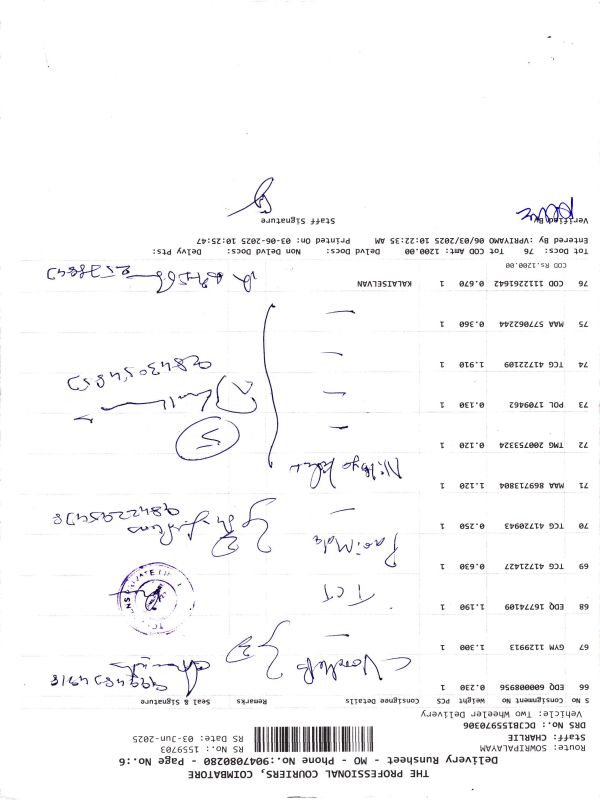 THE PROFESSIONAL COURIERS, COIMBATORE
Delivery Runsheet - MO - Phone No.:9047080280 - Page No.:6
Route: SOWRIPALAYAM
Staff: CHARLIE
DRS No.: DCJB1559970306
Vehicle: Two Wheeler Delivery
RS No.: 1559703
RS Date: 03-Jun-2025
S No Consignment No Weight PCS Consignee Details Remarks Seal & Signature
66 EDQ 600008956 0.230 1
67 GYM 1129913 1.300 1
68 EDQ 16774109 1.190 1 TCT
69 TCG 41721427 0.630 1
70 TCG 41720943 0.250 1
71 MAA 869713804 1.120 1
72 TMG 200753324 0.120 1
5
73 POL 1709462 0.130 1
9843054853
74 TCG 41722109 1.910 1
75 MAA 577062244 0.360 1
76 COD 111261642 0.670 1 KALAISELVAN
COD Rs.1200.00
Tot Docs: 76 Tot COD Amt: 1200.00 Delvd Docs: Non Delvd Docs: Delvy Pts:
Entered By :VPRIYAMO 06/03/2025 10:22:35 AM Printed On: 03-06-2025 10:25:47
Verified By
Staff Signature